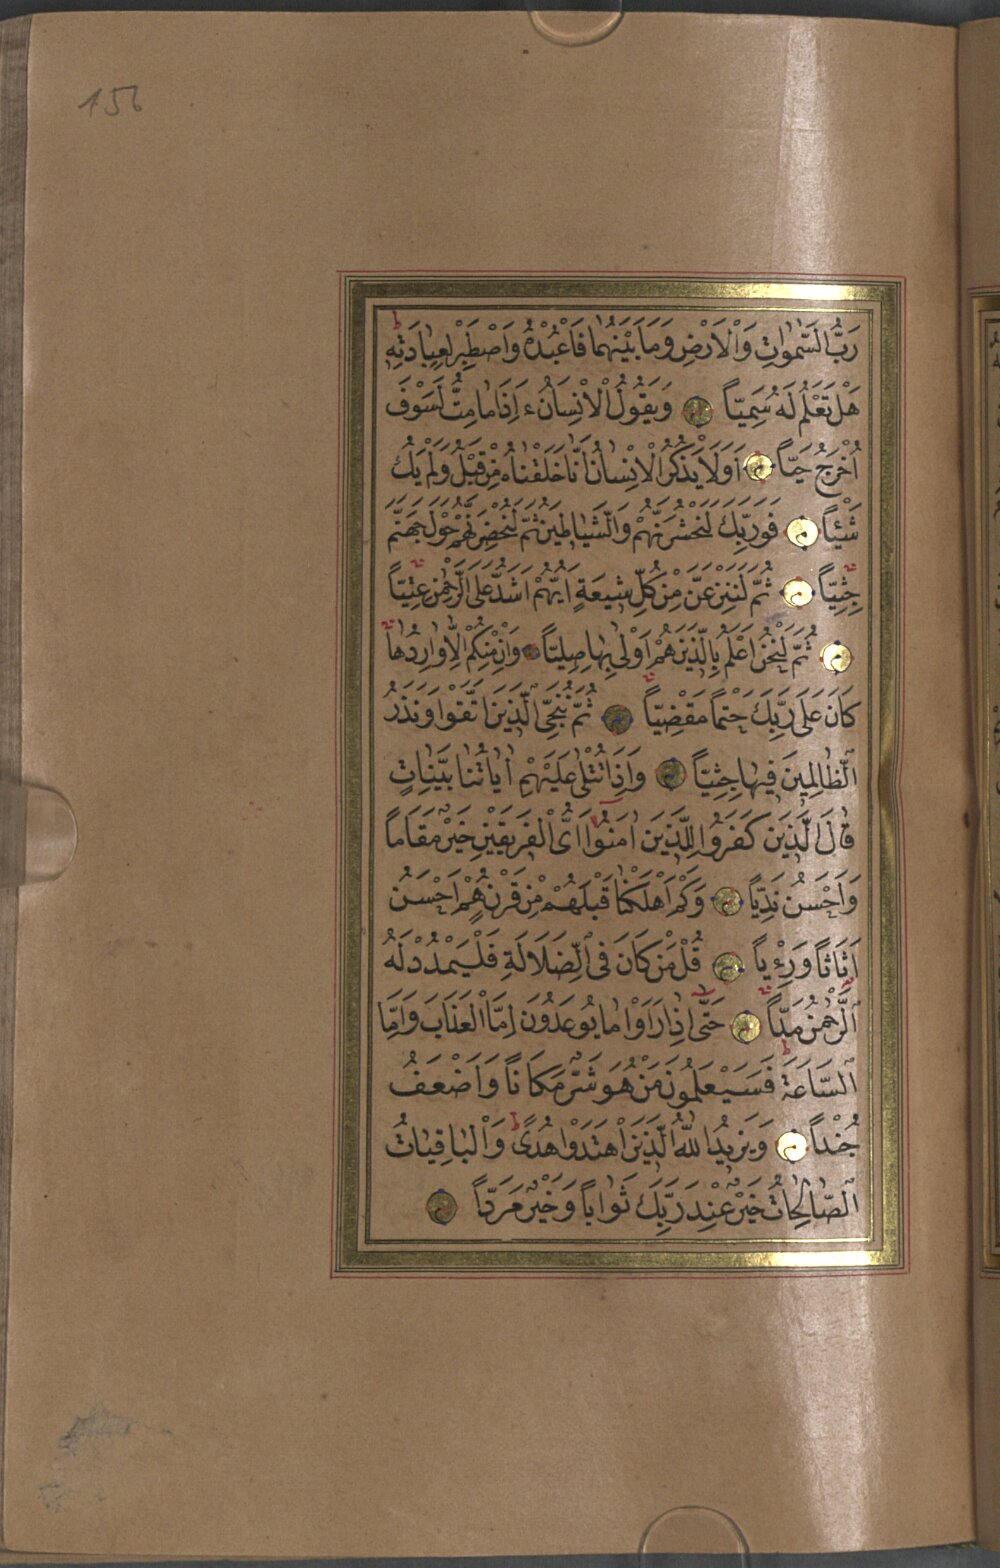 155
رَبُّ السَّمٰوَاتِ وَالْاَرْضِ وَمَا بَيْنَهُمَا فَاعْبُدْهُ وَاصْطَبِرْ لِعِبَادَتِهِ
هَلْ تَعْلَمُ لَهُ سَمِيًّا وَيَقُولُ الْاِنْسَانُ ءَاِذَا مَا مِتُّ لَسَوْفَ
اُخْرَجُ حَيًّا اَوَلَا يَذْكُرُ الْاِنْسَانُ اَنَّا خَلَقْنَاهُ مِنْ قَبْلُ وَلَمْ يَكُ
شَيْئًا فَوَرَبِّكَ لَنَحْشُرَنَّهُمْ وَالشَّيَاطِينَ ثُمَّ لَنُحْضِرَنَّهُمْ حَوْلَ جَهَنَّمَ
جِثِيًّا ثُمَّ لَنَنْزِعَنَّ مِنْ كُلِّ شِيعَةٍ اَيُّهُمْ اَشَدُّ عَلَى الرَّحْمٰنِ عِتِيًّا
ثُمَّ لَنَحْنُ اَعْلَمُ بِالَّذِينَ هُمْ اَوْلٰى بِهَا صِلِيًّا وَاِنْ مِنْكُمْ اِلَّا وَارِدُهَا
كَانَ عَلٰى رَبِّكَ حَتْمًا مَقْضِيًّا ثُمَّ نُنَجِّي الَّذِينَ اتَّقَوْا وَنَذَرُ
الظَّالِمِينَ فِيهَا جِثِيًّا وَاِذَا تُتْلٰى عَلَيْهِمْ اٰيَاتُنَا بَيِّنَاتٍ
قَالَ الَّذِينَ كَفَرُوا لِلَّذِينَ اٰمَنُوا اَىُّ الْفَرِيقَيْنِ خَيْرٌ مَقَامًا
وَاَحْسَنُ نَدِيًّا وَكَمْ اَهْلَكْنَا قَبْلَهُمْ مِنْ قَرْنٍ هُمْ اَحْسَنُ
اَثَاثًا وَرِءْيًا قُلْ مَنْ كَانَ فِى الضَّلَالَةِ فَلْيَمْدُدْ لَهُ
الرَّحْمٰنُ مَدًّا حَتّٰى اِذَا رَاَوْا مَا يُوعَدُونَ اِمَّا الْعَذَابَ وَاِمَّا
السَّاعَةَ فَسَيَعْلَمُونَ مَنْ هُوَ شَرٌّ مَكَانًا وَاَضْعَفُ
جُنْدًا وَيَزِيدُ اللّٰهُ الَّذِينَ اهْتَدَوْا هُدًى وَالْبَاقِيَاتُ
الصَّالِحَاتُ خَيْرٌ عِنْدَ رَبِّكَ ثَوَابًا وَخَيْرٌ مَرَدًّا